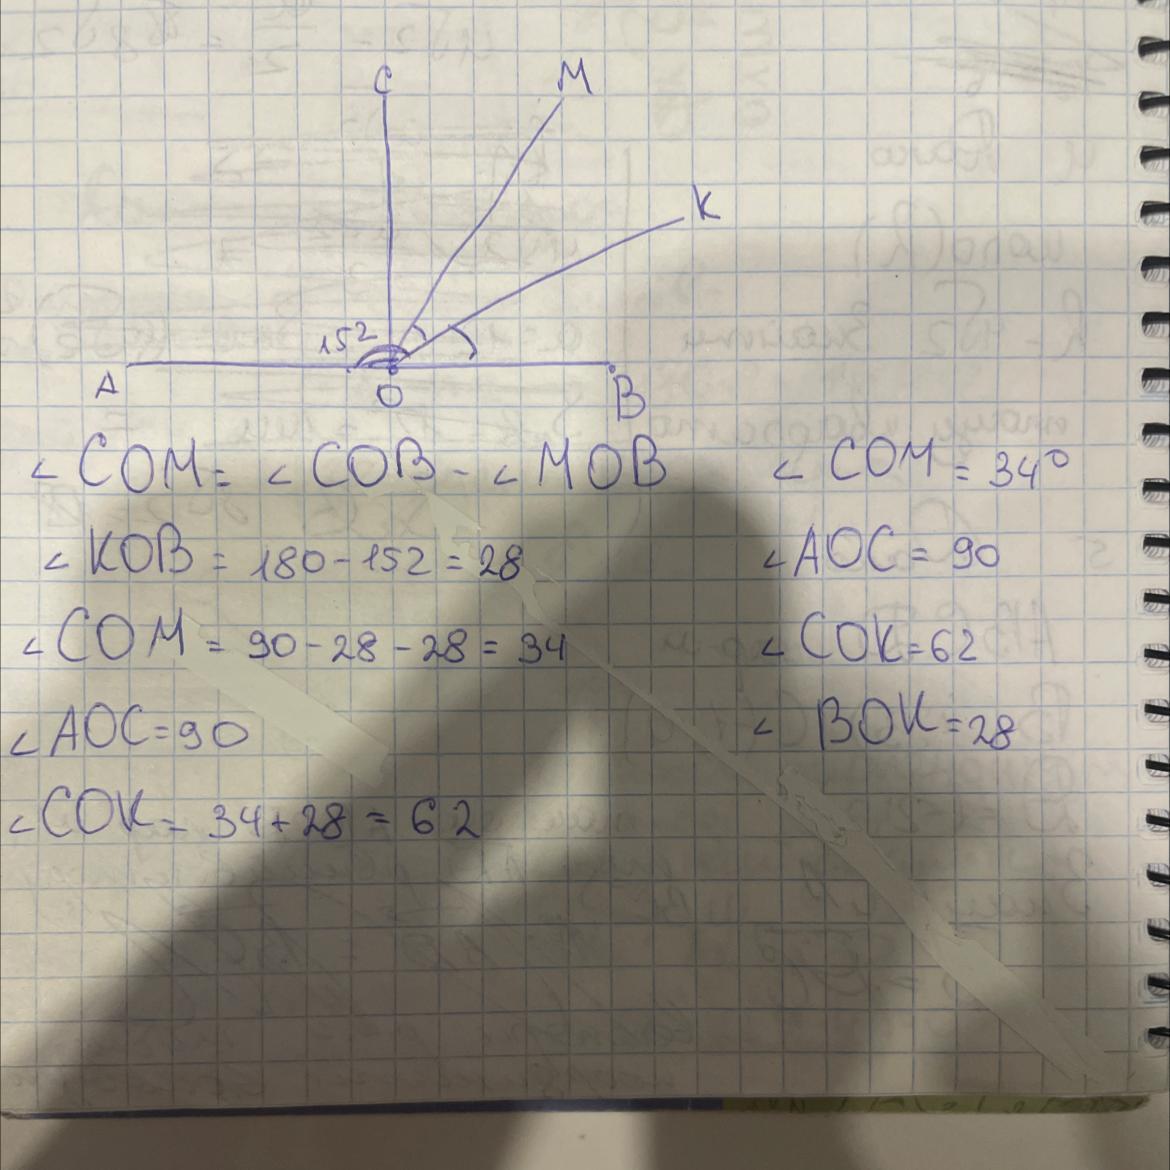 C
M
K
152
A
O
B
∠COM = ∠COB - ∠MOB
∠KOB = 180-152 = 28
∠COM = 90-28-28 = 34
∠AOC=90
∠COK = 34+28 = 62
∠COM = 34°
∠AOC = 90
∠COK=62
∠BOK=28